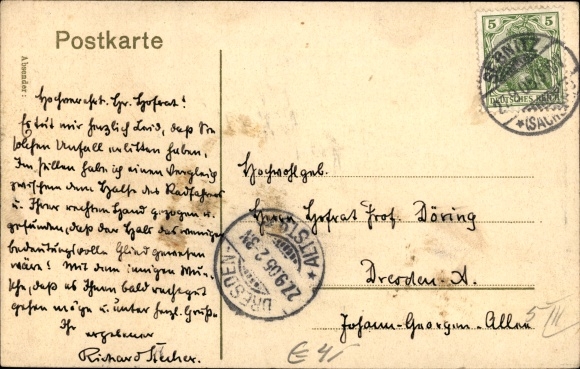 Postkarte
Absender:
Hochverehrt. Hr. Hofrat!
Es tut mir herzlich Leid, daß Sie
solchen Unfall erlitten haben.
Im stillen habe ich einen Vergleich
zwischen dem Halse des Radfahrers
u. Ihrer rechten Hand gezogen u.
gefunden, daß der Hals das weniger
bedeutungsvolle Glied gewesen
wäre! Mit dem innigen Wun-
sche, daß es Ihnen bald recht gut
gehen möge u. unter herzl. Grüße
Ihr
ergebener
Richard Stecher.
5 5
DEUTSCHES REICH
SEBNITZ
*(SACHSEN)
Hochwohlgeb.
Herrn Hofrat Prof. Döring
Dresden-A.
Johann-Georgen-Allee
5/III
DRESDEN ALTST.
22.9.05. 2-3N